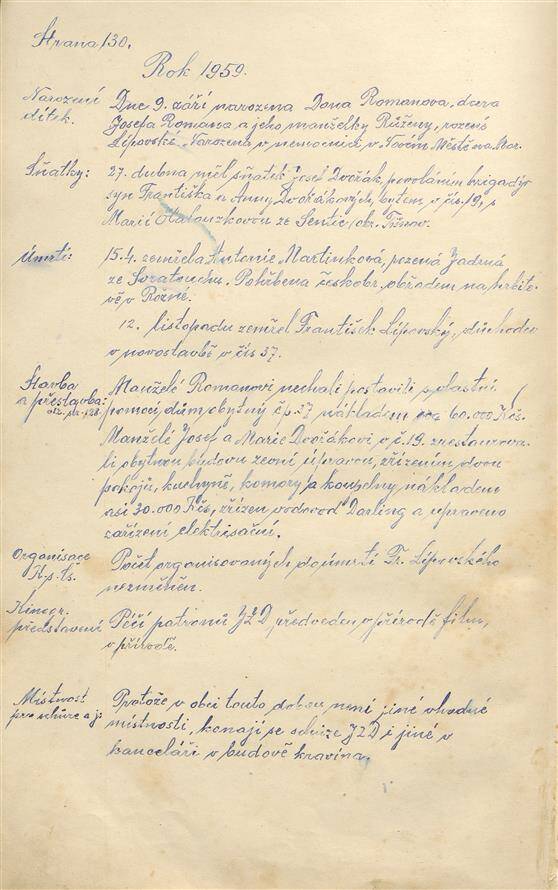 Strana 130.
Rok 1959.
Narození dítek.
Dne 9. září narozena Dana Romanova, dcera
Josefa Romana a jeho manželky Růženy, rozené
Lipovské. Narozena v nemocnici v Novém Městě na Mor.
Sňatky:
27. dubna měl sňatek Josef Dvořák, povoláním brigadýr
syn Františka a Anny Dvořákových, bytem v čís. 19, s
Marií ze Sentic, okr. Tišnov.
Úmrtí:
15.4. zemřela Antonie Martinková, rozená Jadrná
ze Svratouchu. Pohřbena českobr. obřadem na hřbito-
vě v Rožné.
12. listopadu zemřel František Lipovský, důchodce
v novostavbě v čís 37.
Stavba
a přestavba:
Manželé Romanovi nechali postaviti s vlastní
pomocí dům obytný čp. 37 nákladem 60.000 Kčs.
Manželé Josef a Marie Dvořákovi v č. 19. zrestaurova-
li obytnou budovu zevní úpravou, zřízením dvou
pokojů, kuchyně, komory a koupelny, nákladem
asi 30.000 Kčs, zřízen vodovod Darling a upraveno
zařízení elektrisační.
Organisace
K.s.č.
Počet organisovaných do úmrtí Fr. Lipovského
nezměněn.
Kinogr.
představení
Péčí patronů JZD předveden v přírodě film,
o přírodě.
Místnost
pro schůze a j.
Protože v obci touto dobou není jiné vhodné
místnosti, konají se schůze JZD i jiné v
kanceláři v budově kravína.